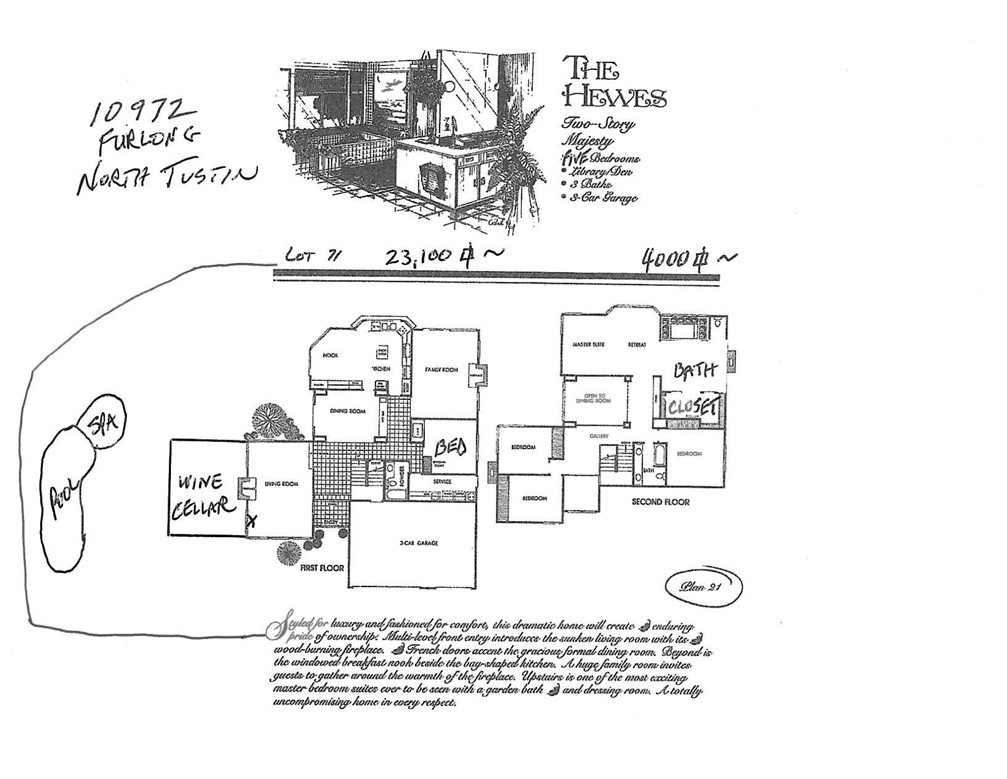 10972
FURLONG
NORTH TUSTIN
THE
HEWES
Two-Story
Majesty
FIVE Bedrooms
• Library/Den
• 3 Baths
• 3-Car Garage
LOT 71 23,100 ⏍ ~ 4000 ⏍ ~
NOOK
KITCHEN
FAMILY ROOM
DINING ROOM
BED
POWDER
SERVICE
LIVING ROOM
WINE
CELLAR
X
ENTRY
3-CAR GARAGE
FIRST FLOOR
SPA
POOL
MASTER SUITE RETREAT
BATH
CLOSET
OPEN TO
DINING ROOM
GALLERY
BEDROOM
BATH
BEDROOM
BEDROOM
SECOND FLOOR
Plan 21
Styled for luxury and fashioned for comfort, this dramatic home will create enduring
pride of ownership. Multi-level front entry introduces the sunken living room with its
wood-burning fireplace. French doors accent the gracious formal dining room. Beyond is
the windowed breakfast nook beside the bay-shaped kitchen. A huge family room invites
guests to gather around the warmth of the fireplace. Upstairs is one of the most exciting
master bedroom suites ever to be seen with a garden bath and dressing room. A totally
uncompromising home in every respect.